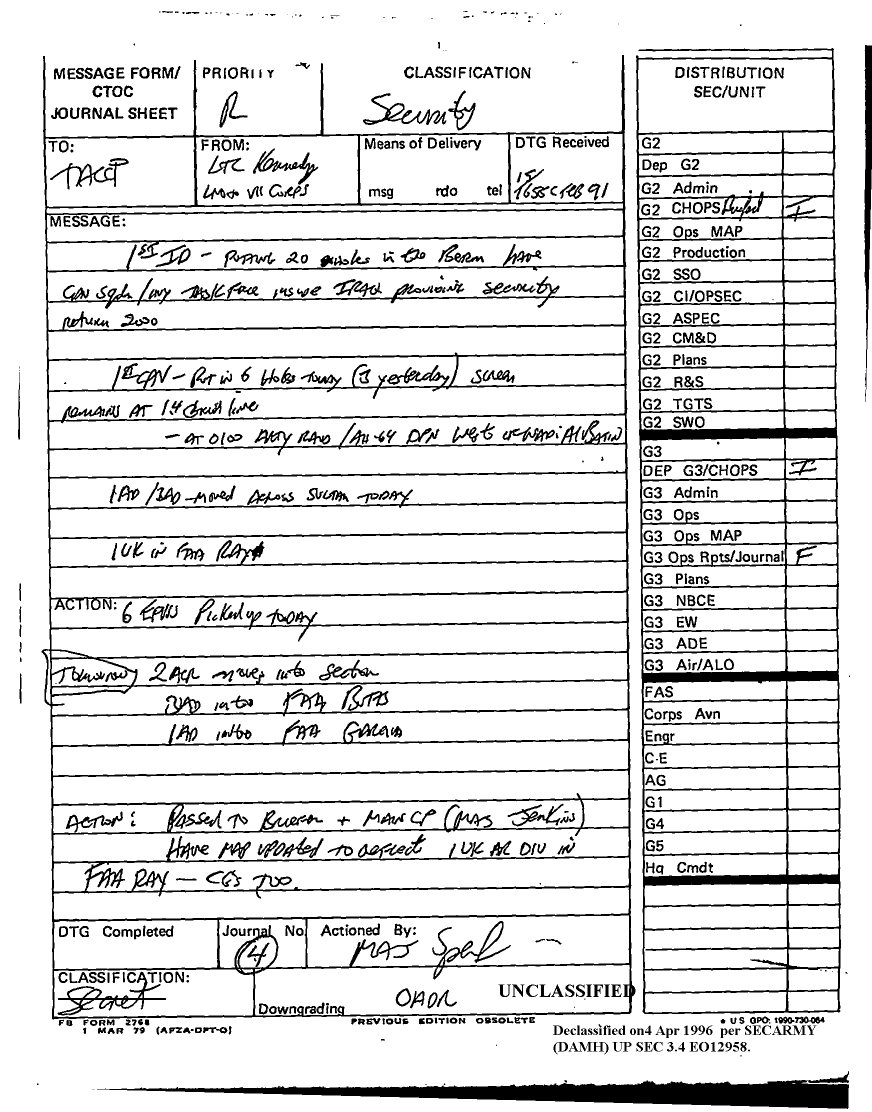 MESSAGE FORM/
CTOC
JOURNAL SHEET
PRIORITY
R
CLASSIFICATION
Security
TO:
TACCP
FROM:
LTC Kennedy
LNO to VII CORPS
Means of Delivery
msg rdo tel
DTG Received
15/
1655C FEB 91
MESSAGE:
1ST ID - PUTTING 20 HOLES in the Berm HAVE
CAV Sqdn / TASK FORCE inside IRAQ PROVIDING SECURITY
return 2000
1ST CAV - PUT in 6 Holes today (3 yesterday) screen
REMAINS AT line
- AT 0100 ARTY RAID / AH-64 OPN West of WADI Al BATIN
1AD / 3AD - moved ACROSS SULTAN TODAY
1UK in FAA RAY
ACTION: 6 EPWs Picked up TODAY
Tomorrow 2 ACR moves into Sector
3AD into FAA BUTTS
1AD into FAA
ACTION: PASSED TO + MAIN CP (MAJ Jenkins)
HAVE MAP UPDATED TO REFLECT 1 UK AR DIV IN
FAA RAY - CG'S TOO.
DTG Completed
Journal No
4
Actioned By:
MAJ
CLASSIFICATION:
Secret
Downgrading
OADR
UNCLASSIFIED
FB FORM 2768
1 MAR 79 (AFZA-DPT-O)
PREVIOUS EDITION OBSOLETE
★ US GPO: 1990-730-084
Declassified on4 Apr 1996 per SECARMY
(DAMH) UP SEC 3.4 EO12958.
DISTRIBUTION
SEC/UNIT
G2
Dep G2
G2 Admin
G2 CHOPS I
G2 Ops MAP
G2 Production
G2 SSO
G2 CI/OPSEC
G2 ASPEC
G2 CM&D
G2 Plans
G2 R&S
G2 TGTS
G2 SWO
G3
DEP G3/CHOPS I
G3 Admin
G3 Ops
G3 Ops MAP
G3 Ops Rpts/Journal F
G3 Plans
G3 NBCE
G3 EW
G3 ADE
G3 Air/ALO
FAS
Corps Avn
Engr
C-E
AG
G1
G4
G5
Hq Cmdt